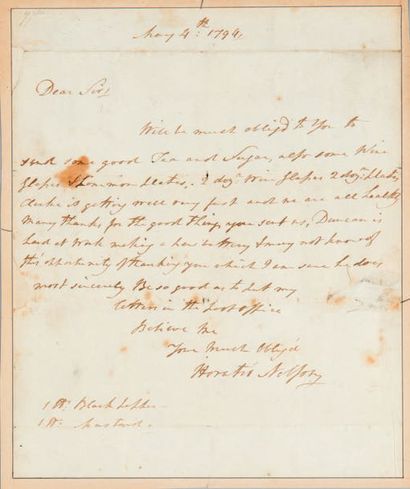 May 4th: 1794,
Dear Sir,
Will be much oblig'd to You to
send some good Tea and Sugar, also some Wine
Glasses & Common Plates. 2 dozn Wine Glasses 2 dozn Plates
is getting well very fast and we are all healthy
Many thanks for the good things you sent us, Duncan is
hard at work making a new battery & may not know of
this opportunity of thanking you which I am sure he does
most sincerely Be so good as to put my
letters in the Post office
Believe Me
Your Much Oblig'd
Horatio Nelson
1 lb: Black Pepper
1 lb: Mustard.